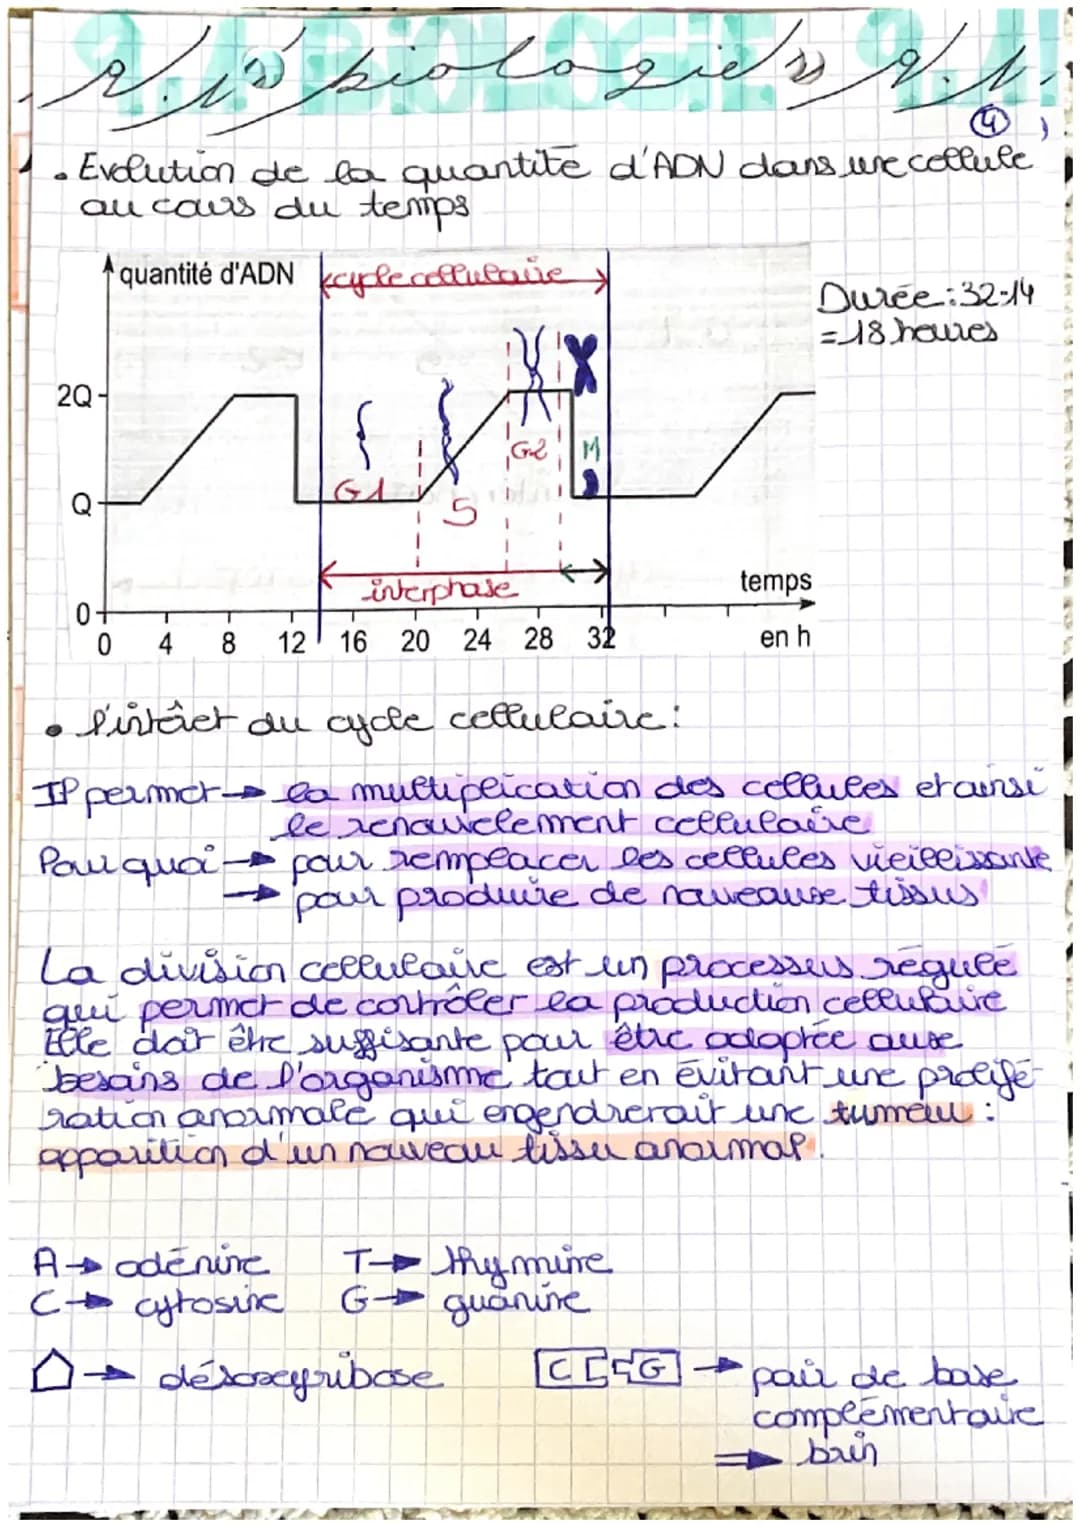 9.1 BIOLOGIE 9.1
9.1 "biologie" 9.1.
4
• Evolution de la quantité d'ADN dans une cellule
au cours du temps
quantité d'ADN
cycle cellulaire
Durée : 32-14
= 18 heures
2Q
Q
0
G1
S
G2
M
interphase
temps
en h
0 4 8 12 16 20 24 28 32
• l'intêret du cycle cellulaire :
Il permet → la multiplication des cellules et ainsi
le renouvelement cellulaire
Pourquoi → pour remplacer les cellules vieillissante
→ pour produire de nouveaux tissus
La division cellulaire est un processus régulé
qui permet de contrôler la production cellulaire
Elle doit être suffisante pour être adaptée aux
besoins de l'organisme tout en évitant une prolifé-
ration anormale qui engendrerait une tumeur :
apparition d'un nouveau tissu anormal.
A → adénine T → thymine
C → cytosine G → guanine
→ désoxyribose C G → pair de base
complémentaire
⇒ brin